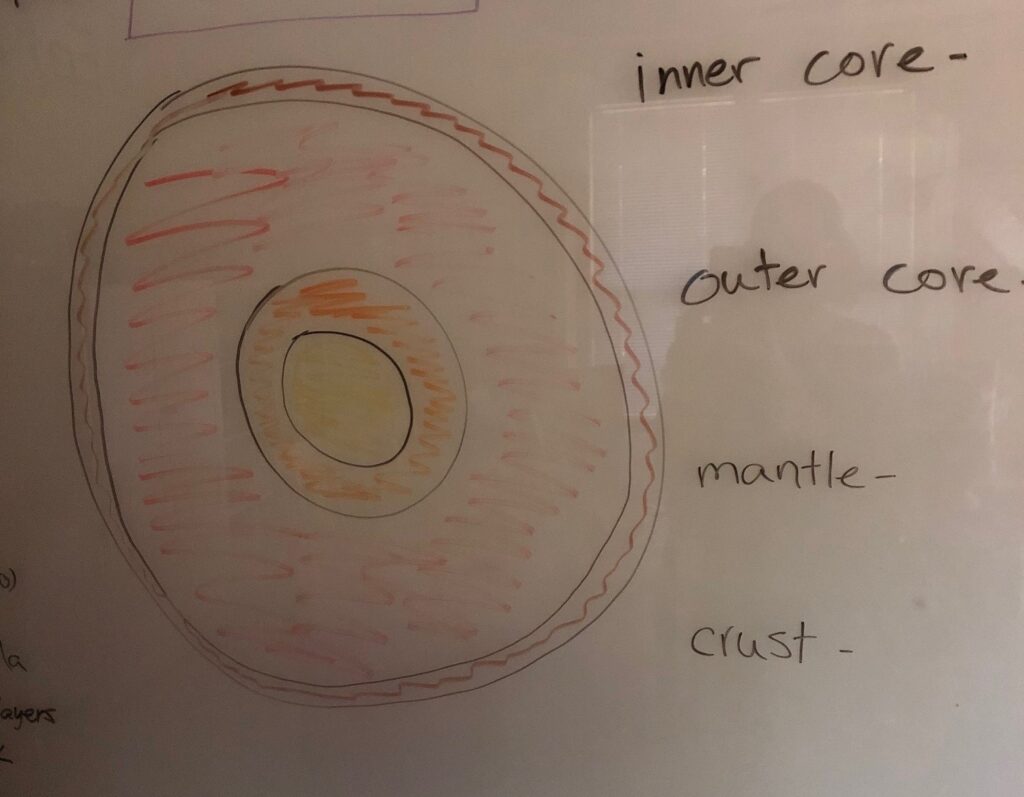 inner core -
outer core -
mantle -
crust -
ayers